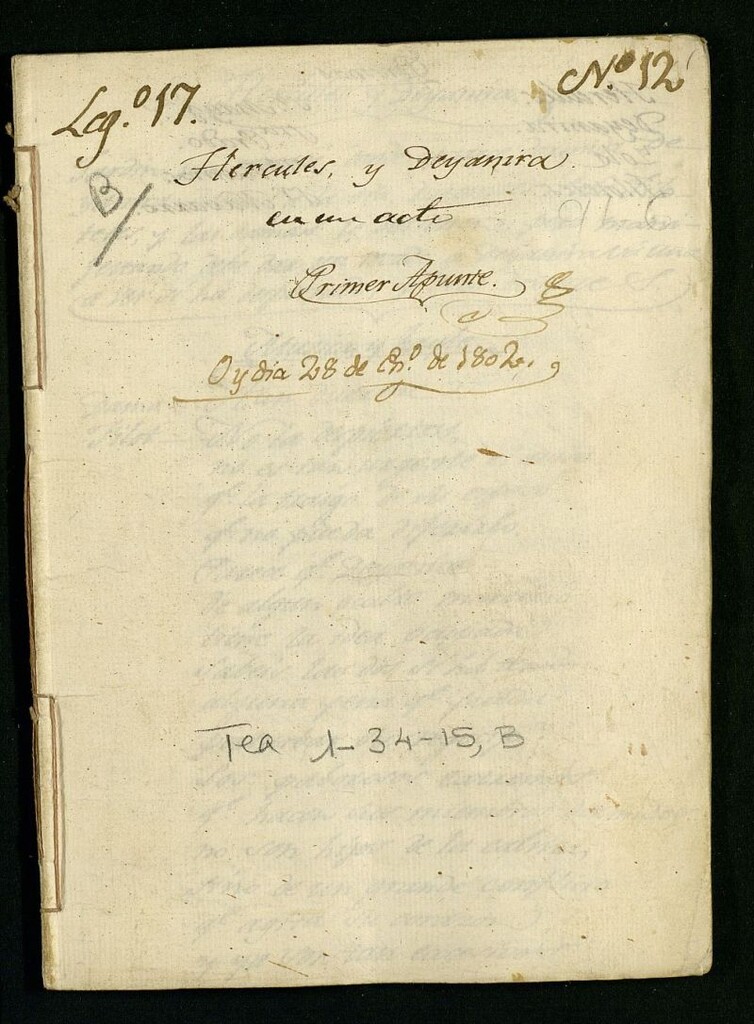 Leg.º 17.
N.º 12
B
Hercules, y Deyanira.
en un acto
Primer Apunte.
Oy dia 28 de En.º de 1802.
Tea 1-34-15, B